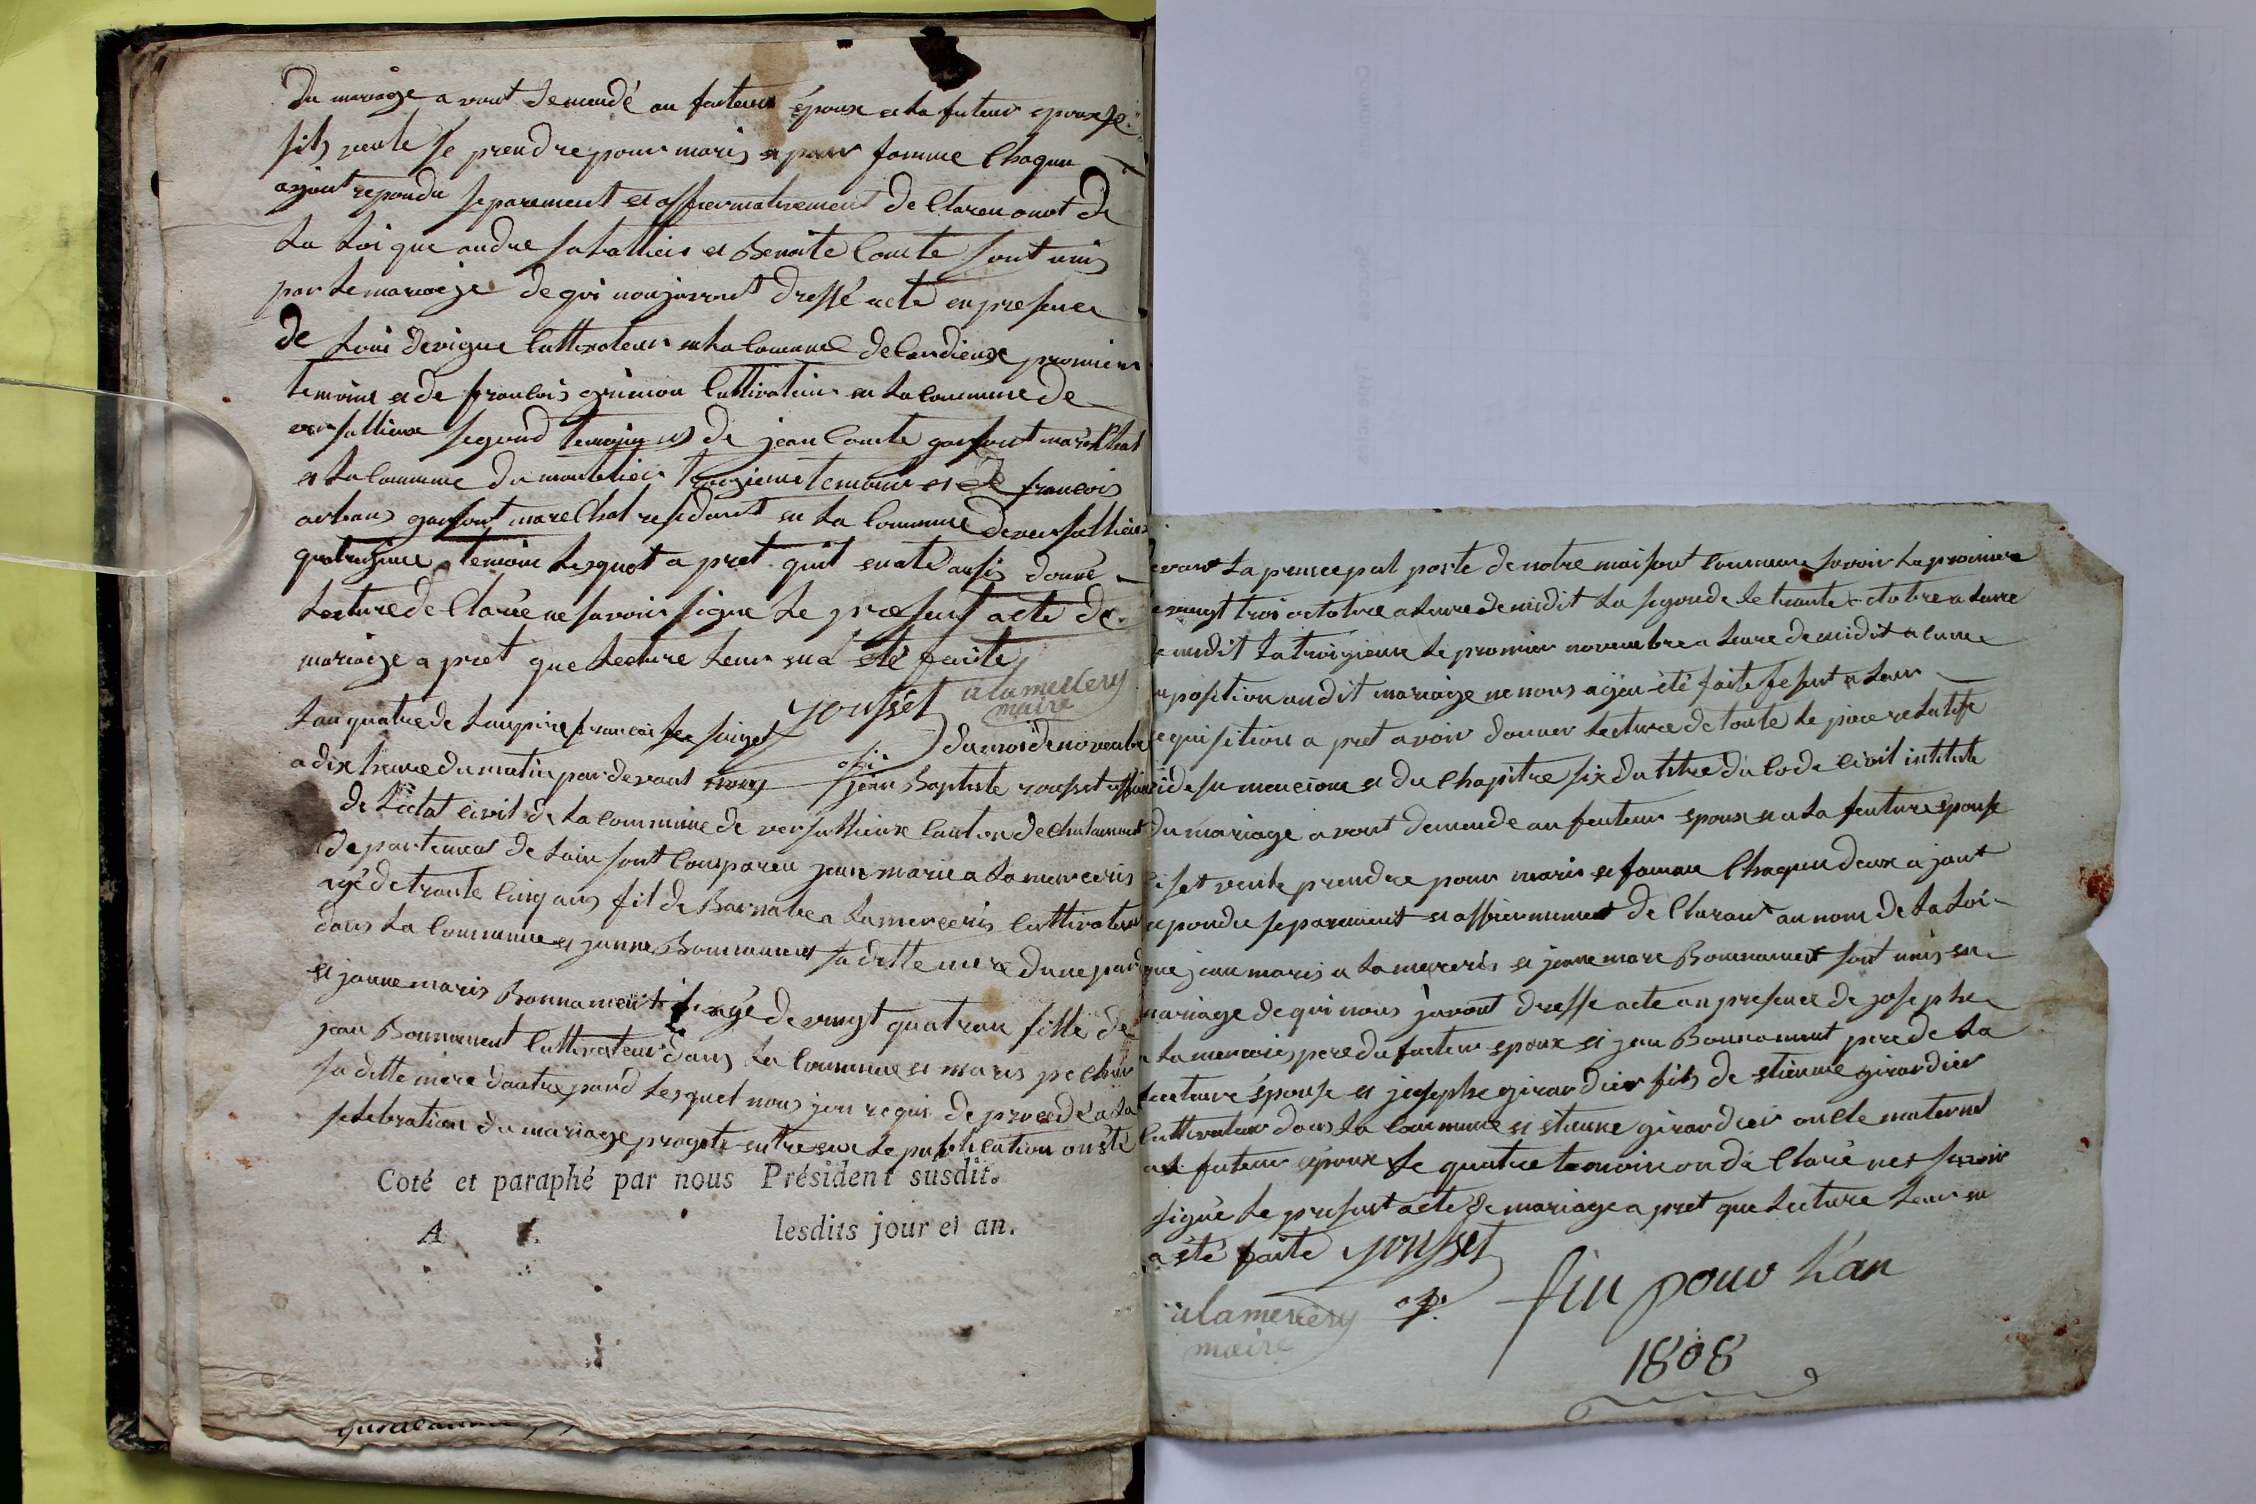 du mariage a vont demendé au fauteur époux et la futeur epouse
sils veule se prendre pour maris et pour famme chaqun
ayant repondu separement et affiermativement declaron o not de
La Loi que andre sabattier et Benoite Comte sont unis
par Le mariage de qui nous javont dressé acte en presence
de Loui devigne Cultivateur en La Comune de Landieuse promier
temoins et de francois grimon Cultivateur en La Commune de
versallieux segond temoins et de jean Comte garsont maréchal
et La Commune du montelier troizieme temoins et de francois
arbans garsont marechal residant en La Commune de versallieux
quatrizime temoin Lesquet a pret quil en a té ausis donné
Lecture de Clarée ne savoir signe Le present acte de
mariage a pret que Lecture Leur en a été faite
rousset alamercery
maire
Lan quatre de Lanpire francai Le sinqet du moi de novenbre
ofi
a dix heure du matin par devant nous jean Baptiste rousset offisié
de Lédat civil de La commune de versallieux Canton de chalamont
departement de Lain sont Compareu jean marie a La merceris
agé de trante Cinq ans fil de Barnabe a Lamerceris Cultivateur
dans La Commune et janne Bonnament sa ditte mere dune pard
et janne maris Bonnament agé de vingt quatrean fille de
jean Bonnament Cultivateur dans La Commune et maris pechin
sa ditte mere dautre pard Lesquet nous jon requi de procedé a La
selebration du mariage progeté entre eux Le publication on été
Coté et paraphé par nous Président susdit.
A lesdits jour et an.
devant La prencepal porte de notre maisont Commune savoir La promiere
Le vingt trois octobre a Leure de midit La segonde Le trante octobre a Leure
de midit La troizieme Le promier novembre a Leure de midit aCune
opposition audit mariage ne nous a yen été faite fesant a Leur
requisition a pret avoir donner Lecture de toute Le piece relatife
ci de su mencione et du Chapitre six du titre du Code Civil intitule
du mariage avont demende au feuteur epoux et a La feuture epouse
si set veule prendre pour maris et famme Chaqun deux ajant
repondu separement et affiermement de Clarant au nom de La Loi
que jean maris a Lamerceris et janne mare Bonnament sont unis en
mariage de qui nous javont dresse acte an presence de josephe
a Lamerceris pere du fauteur epoux et jean Bonnament pere de La
feuteure épouse et josephe girardier fils de etienne girardier
Cultivateur dans La Commune et etienne girardier oncle maternel
au futeur epoux Le quatre temoin on dé Claré net savoir
signé Le present acte de mariage a pret que Lecture Leur en
a été faite rousset
alamercery ofi.
maire
fin pour L'an
1808